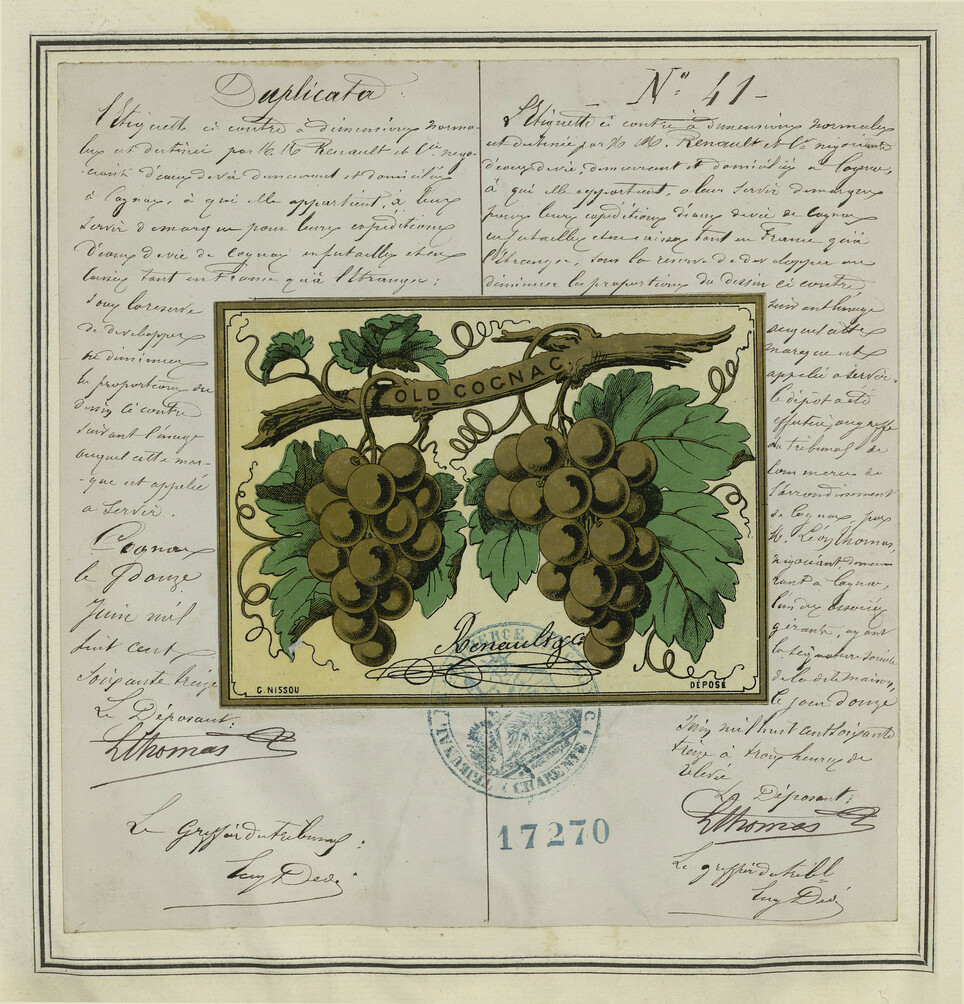 Duplicata
L'Etiquette ci contre à dimensions norma-
les est destinée par M.M. Renault et Cie négo-
ciants d'eaux de vie demeurant et domiciliés
à Cognac, à qui elle appartient, à leur
servir de marque pour leurs expéditions
d'eaux de vie de Cognac en futailles et en
caisses tant en France qu'à l'étranger;
sous la reserve
de développer
ou diminuer
les proportions du
dessin ci contre
suivant l'usage
auquel cette mar-
-que est appelée
à servir.
Cognac
le douze
Juin mil
huit cent
soixante treize
Le Déposant:
LThomas
Le Greffier du tribunal:
N° 41-
L'Etiquette ci contre à dimensions normales
est destinée par M.M. Renault et Cie négociants
d'eaux de vie, demeurant et domiciliés à Cognac,
à qui elle appartient, à leur servir de marque
pour leurs expéditions d'eaux de vie de Cognac
en futailles et en caisses tant en France qu'à
l'étranger, sous la reserve de développer ou
diminuer les proportions du dessin ci contre
suivant l'usage
auquel cette
marque est
appelée à servir.
Le dépot a été
effectué au greffe
du tribunal de
Commerce de
l'arrondissement
de Cognac par
M. Léon Thomas,
négociant demeu-
rant à Cognac,
l'un des associés
gérants, ayant
la signature sociale
de la dite maison,
le jour douze
Juin mil huit cent soixante
treize à trois heures de
relevée
Le Déposant:
LThomas
Le greffier du tribl
OLD COGNAC
Renault & Co
G. NISSOU
DÉPOSÉ
TRIBUNAL
COMMERCE
(CHARENTE)
17270